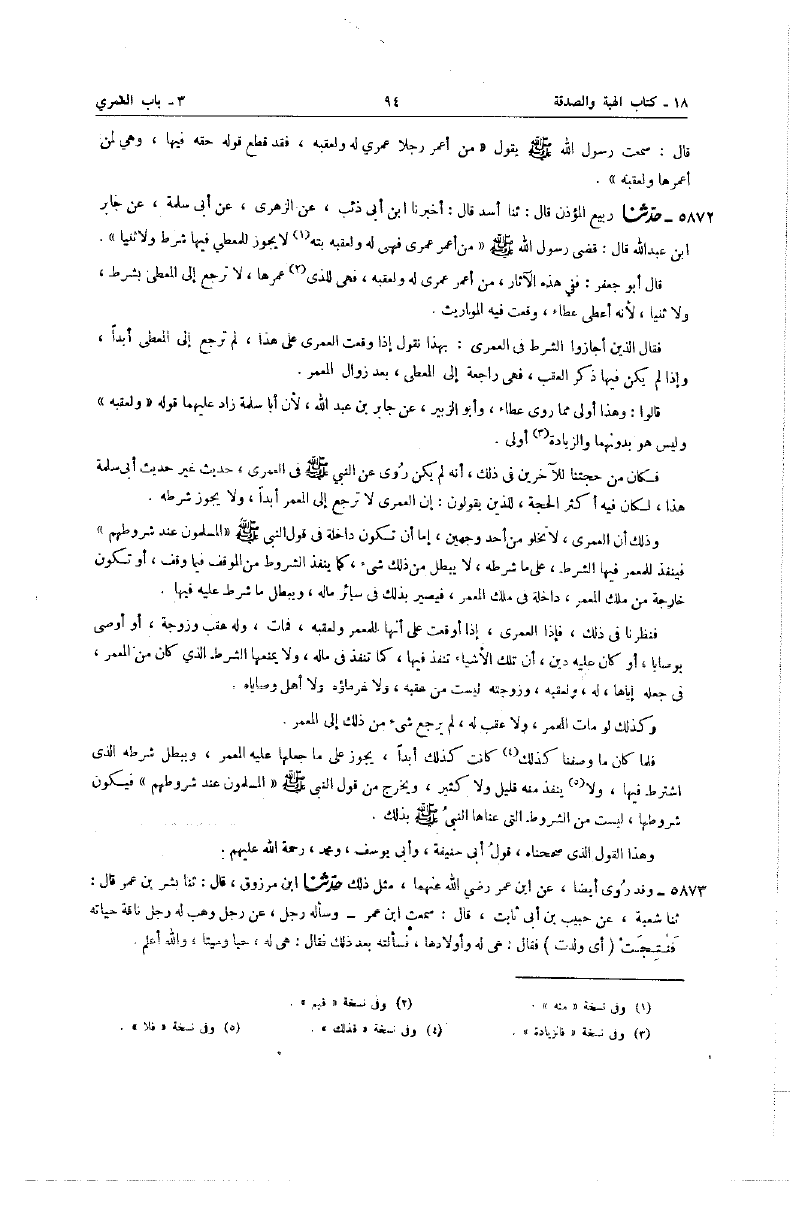 ١٨ ـ كتاب الهبة والصدقة ٩٤ ٣ ـ باب العمرى
قال : سمعت رسول الله ﷺ يقول « من أعمر رجلا عمري له ولعقبه ، فقد قطع قوله حقه فيها ، وهي لمن
أعمرها ولعقبه » .
٥٨٧٢ ـ حدثنا ربيع المؤذن قال : ثنا أسد قال : أخبرنا ابن أبى ذئب ، عن الزهرى ، عن أبى سلمة ، عن جابر
ابن عبدالله قال : قضى رسول الله ﷺ « من أعمر عمرى فهى له ولعقبه بته(١) لا يجوز للمعطي فيها شرط ولا ثنيا » .
قال أبو جعفر : ففي هذه الآثار ، من أعمر عمرى له ولعقبه ، فهى للذى(٢) عمرها ، لا ترجع إلى المعطى بشرط ،
ولا ثنيا ، لأنه أعطى عطاء ، وقعت فيه المواريث .
فقال الذين أجازوا الشرط فى العمرى : بهذا نقول إذا وقعت العمرى على هذا ، لم ترجع إلى المعطى أبداً ،
وإذا لم يكن فيها ذكر العقب ، فهى راجعة إلى المعطى ، بعد زوال المعمر .
قالوا : وهذا أولى مما روى عطاء ، وأبو الزبير ، عن جابر بن عبد الله ، لأن أبا سلمة زاد عليهما قوله « ولعقبه »
وليس هو بدونهما والزيادة(٣) أولى .
فكان من حجتنا للآخرين فى ذلك ، أنه لم يكن رُوى عن النبي ﷺ فى العمرى ، حديث غير حديث أبى سلمة
هذا ، لكان فيه أكثر الحجة ، للذين يقولون : إن العمرى لا ترجع إلى المعمر أبداً ، ولا يجوز شرطه .
وذلك أن العمرى ، لا تخلو من أحد وجهين ، إما أن تكون داخلة فى قول النبي ﷺ «المسلمون عند شروطهم »
فينفذ للمعمر فيها الشرط ، على ما شرطه ، لا يبطل من ذلك شىء ، كما ينفذ الشروط من الموقف فيما وقف ، أو تكون
خارجة من ملك المعمر ، داخلة فى ملك المعمر ، فيصير بذلك فى سائر ماله ، ويبطل ما شرط عليه فيها .
فنظرنا فى ذلك ، فإذا العمرى ، إذا أوقعت على أنها للمعمر ولعقبه ، فمات ، وله عقب وزوجة ، أو أوصى
بوصايا ، أو كان عليه دين ، أن تلك الأشياء تنفذ فيها ، كما تنفذ فى ماله ، ولا يمنعها الشرط الذي كان من المعمر ،
فى جعله إياها ، له ، ولعقبه ، وزوجته ليست من عقبه ، ولا غرماؤه ولا أهل وصاياه .
وكذلك لو مات المعمر ، ولا عقب له ، لم يرجع شىء من ذلك إلى المعمر .
فلما كان ما وصفنا كذلك(٤) كانت كذلك أبداً ، يجوز على ما جعلها عليه المعمر ، ويبطل شرطه الذى
اشترط فيها ، ولا(٥) ينفذ منه قليل ولا كثير ، ويخرج من قول النبي ﷺ « المسلمون عند شروطهم » فيكون
شروطها ، ليست من الشروط التى عناها النبيُ ﷺ بذلك .
وهذا القول الذى صححناه ، قولُ أبى حنيفة ، وأبى يوسف ، ومحمد ، رحمة الله عليهم .
٥٨٧٣ ـ وقد رُوى أيضا ، عن ابن عمر رضي الله عنهما ، مثل ذلك حدثنا ابن مرزوق ، قال : ثنا بشر بن عمر قال :
ثنا شعبة ، عن حبيب بن أبى ثابت ، قال : سمعت ابن عمر ـ وسأله رجل ، عن رجل وهب له رجل ناقة حياته
فَنُتِجَتْ ( أى ولدت ) فقال : هى له وأولادها ، فسألته بعد ذلك فقال : هى له ، حيا وميتا ، والله أعلم .
(١) وفى نسخة « منه » . (٢) وفى نسخة « فيم » .
(٣) وفى نسخة « فالزيادة » . (٤) وفى نسخة « فذلك » . (٥) وفى نسخة « فلا » .